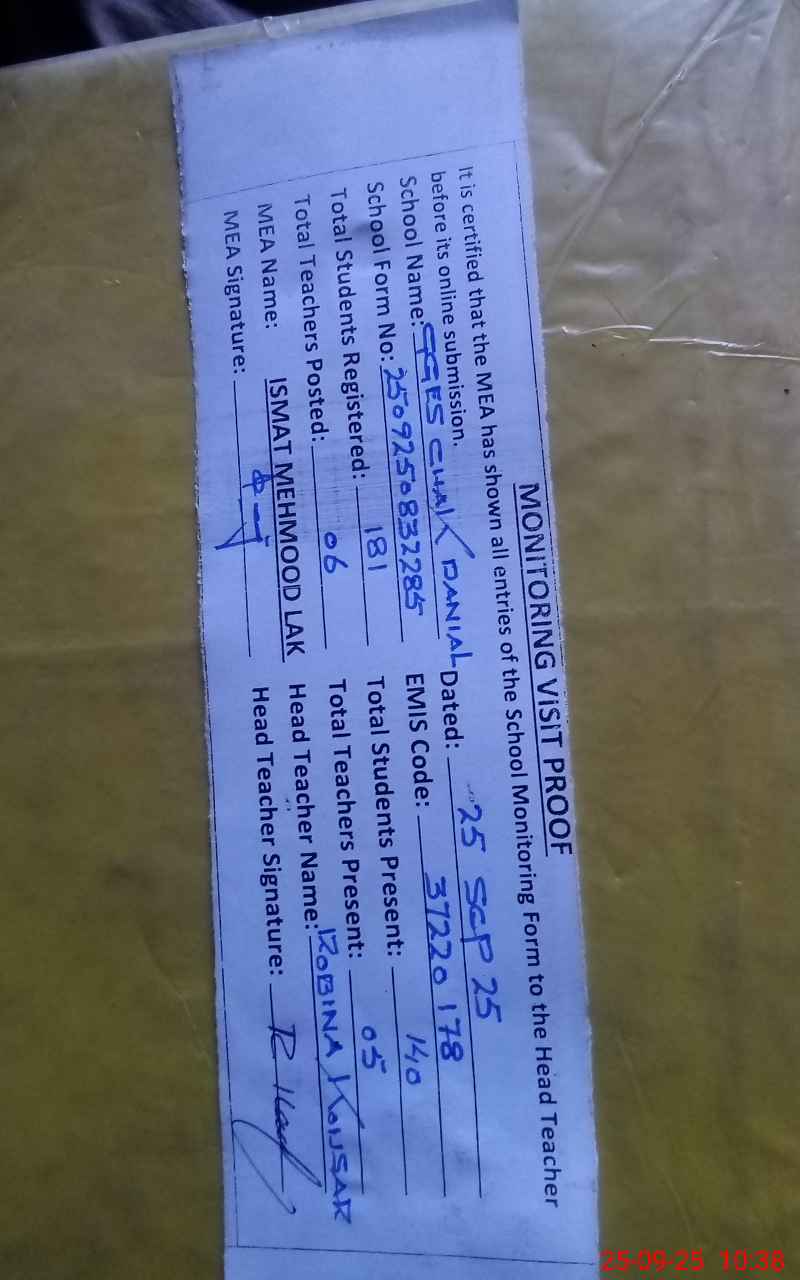 MONITORING VISIT PROOF
It is certified that the MEA has shown all entries of the School Monitoring Form to the Head Teacher
before its online submission.
School Name: GGES CHAK DANIAL Dated: 25 SEP 25
School Form No: 2509250832285 EMIS Code: 37220178
Total Students Registered: 181 Total Students Present: 140
Total Teachers Posted: 06 Total Teachers Present: 05
MEA Name: ISMAT MEHMOOD LAK Head Teacher Name: ROBINA KOUSAR
MEA Signature: Head Teacher Signature:
25-09-25 10:38